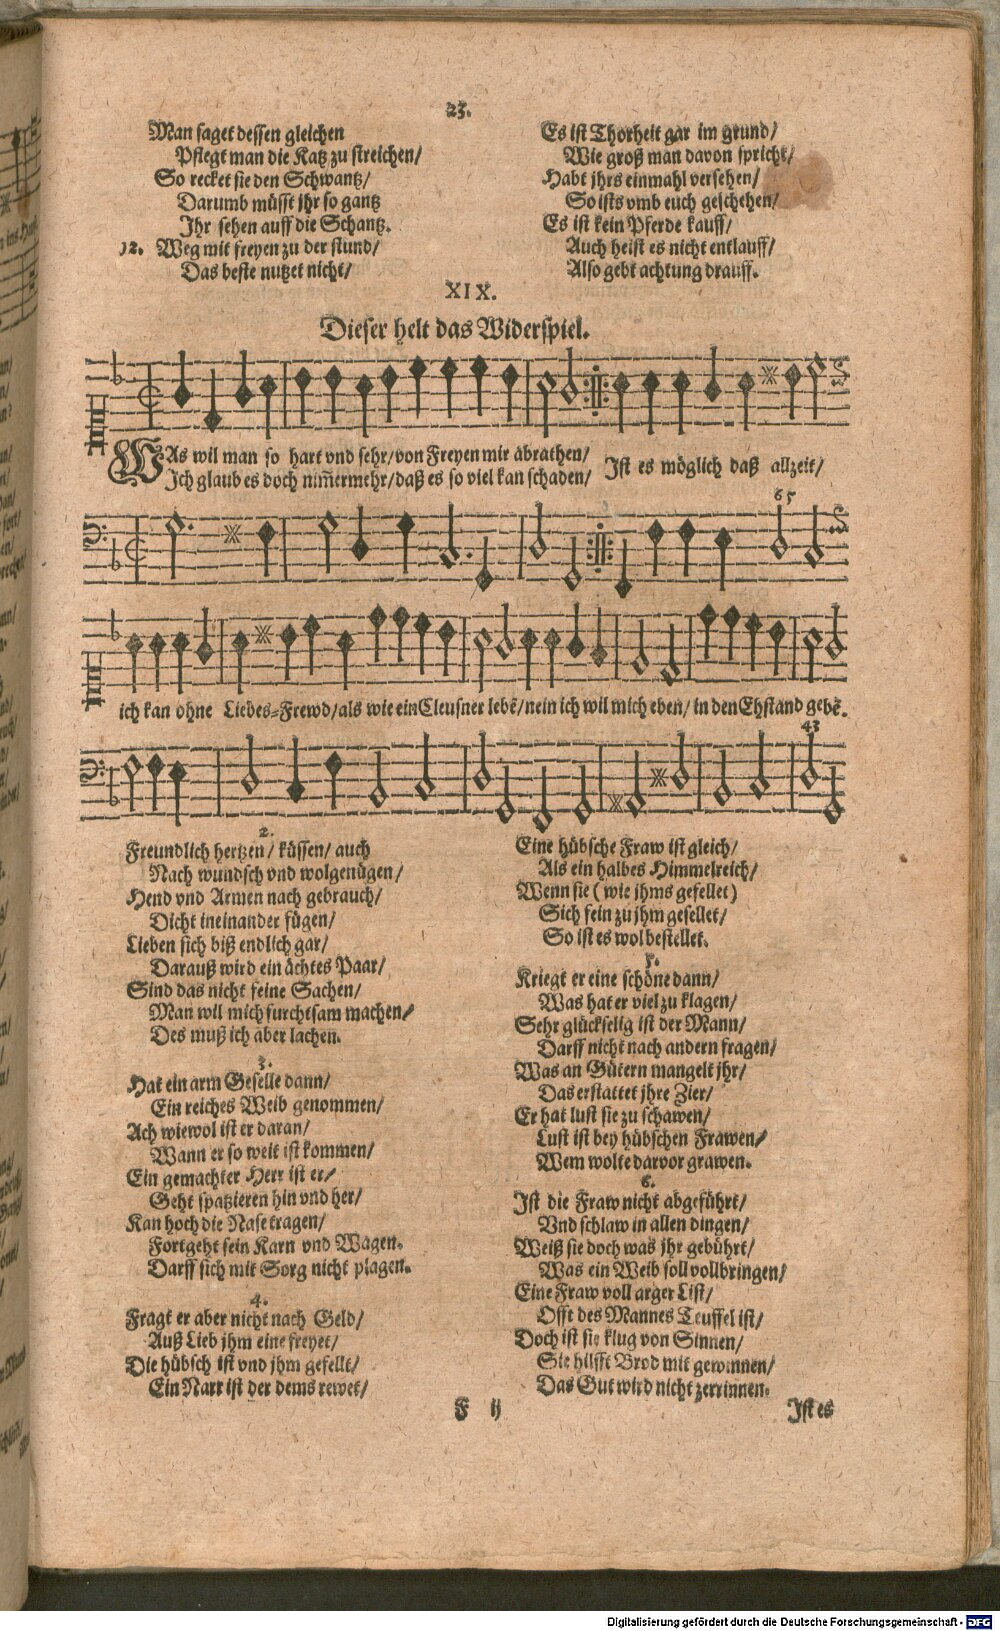 23.
Man saget dessen gleichen
Pflegt man die Katz zu streichen/
So recket sie den Schwantz/
Darumb müsst jhr so gantz
Ihr sehen auff die Schantz.
12. Weg mit freyen zu der stund/
Das beste nutzet nicht/
Es ist Thorheit gar im grund/
Wie groß man davon spricht/
Habt jhrs einmahl versehen/
So ists vmb euch geschehen/
Es ist kein Pferde kauff/
Auch heist es nicht entlauff/
Also gebt achtung drauff.
XIX.
Dieser helt das Widerspiel.
WAs wil man so hart vnd sehr/von Freyen mir abrathen/
Ich glaub es doch nim̄ermehr/daß es so viel kan schaden/
Ist es möglich daß allzeit/
65
ich kan ohne Liebes-Frewd/als wie ein Cleusner lebē/nein ich wil mich eben/in den Ehstand gebē.
43
2.
Freundlich hertzen/ küssen/ auch
Nach wundsch vnd wolgenügen/
Hend vnd Armen nach gebrauch/
Dicht ineinander fügen/
Lieben sich biß endlich gar/
Darauß wird ein ächtes Paar/
Sind das nicht feine Sachen/
Man wil mich furchtsam machen/
Des muß ich aber lachen.
3.
Hat ein arm Geselle dann/
Ein reiches Weib genommen/
Ach wiewol ist er daran/
Wann er so weit ist kommen/
Ein gemachter Herr ist er/
Geht spatzieren hin vnd her/
Kan hoch die Nase tragen/
Fortgeht sein Karn vnd Wagen.
Darff sich mit Sorg nicht plagen.
4.
Fragt er aber nicht nach Geld/
Auß Lieb jhm eine freyet/
Die hübsch ist vnd jhm gefellt/
Ein Narr ist der dems rewet/
Eine hübsche Fraw ist gleich/
Als ein halbes Himmelreich/
Wenn sie (wie jhms gefellet)
Sich fein zu jhm gesellet/
So ist es wol bestellet.
5.
Kriegt er eine schöne dann/
Was hat er viel zu klagen/
Sehr glückselig ist der Mann/
Darff nicht nach andern fragen/
Was an Gütern mangelt jhr/
Das erstattet jhre Zier/
Er hat lust sie zu schawen/
Lust ist bey hübschen Frawen/
Wem wolte darvor grawen.
6.
Ist die Fraw nicht abgeführt/
Vnd schlaw in allen dingen/
Weiß sie doch was jhr gebührt/
Was ein Weib soll vollbringen/
Eine Fraw voll arger List/
Offt des Mannes Teuffel ist/
Doch ist sie klug von Sinnen/
Sie hilfft Brod mit gewinnen/
Das Gut wird nicht zerrinnen.
F ij
Ist es
Digitalisierung gefördert durch die Deutsche Forschungsgemeinschaft - DFG